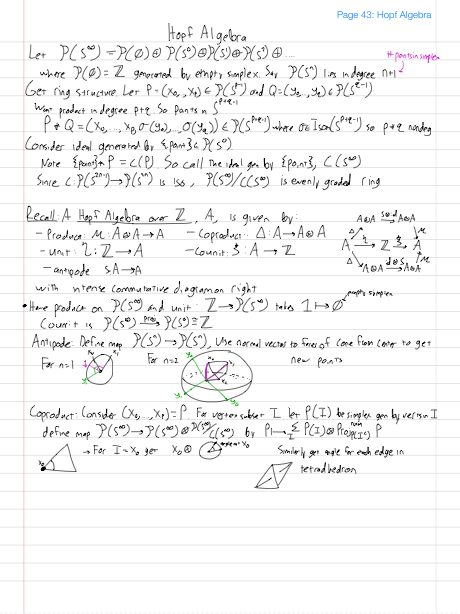 Page 43: Hopf Algebra
Hopf Algebra
Let P(S^∞) = P(∅) ⊕ P(S^0) ⊕ P(S^1) ⊕ P(S^2) ⊕ ....
# points in simplex
where P(∅) = ℤ generated by empty simplex. Say P(S^n) lies in degree n+1
Get ring structure. Let P = (x_0, ..., x_p) ∈ P(S^{p-1}) and Q = (y_1, ..., y_q) ∈ P(S^{q-1})
Want product in degree p+q. So points in S^{p+q-1}
P * Q = (x_0, ..., x_p, σ(y_1), ..., σ(y_q)) ∈ P(S^{p+q-1}) where σ ∈ Isom(S^{p+q-1}) so p*q nondeg
Consider ideal generated by {point} ∈ P(S^0)
Note {point} * P = C(P). So call the ideal gen by {point}, C(S^∞)
Since C: P(S^{2n-1}) → P(S^{2n}) is iso, P(S^∞)/C(S^∞) is evenly graded ring
Recall: A Hopf Algebra over ℤ, A, is given by:
- Product: M: A⊗A → A - Coproduct: Δ: A → A⊗A
- unit: η: ℤ → A - Counit: ξ: A → ℤ
- antipode S: A → A
A⊗A S⊗id → A⊗A
Δ M
A → ℤ → A
Δ M
A⊗A id⊗S → A⊗A
with intense commutative diagram on right
• Have product on P(S^∞) and unit: ℤ → P(S^∞) takes 1 ↦ ∅ empty simplex
Counit is P(S^∞) proj → P(∅) ≅ ℤ
Antipode: Define map P(S^n) → P(S^n), Use normal vectors to faces of cone from center to get
For n=1 For n=2 new points
Coproduct: Consider (x_0, ..., x_p) = P. For vertex subset I let P(I) be simplex gen by vertices in I
define map P(S^∞) → P(S^∞) ⊗ P(S^∞)/C(S^∞) by P ↦ Σ_I P(I) ⊗ Proj_{P(I)^⊥} P
x_0 → For I = x_0 get x_0 ⊗ angle at x_0 Similarly get angle for each edge in
tetrahedron